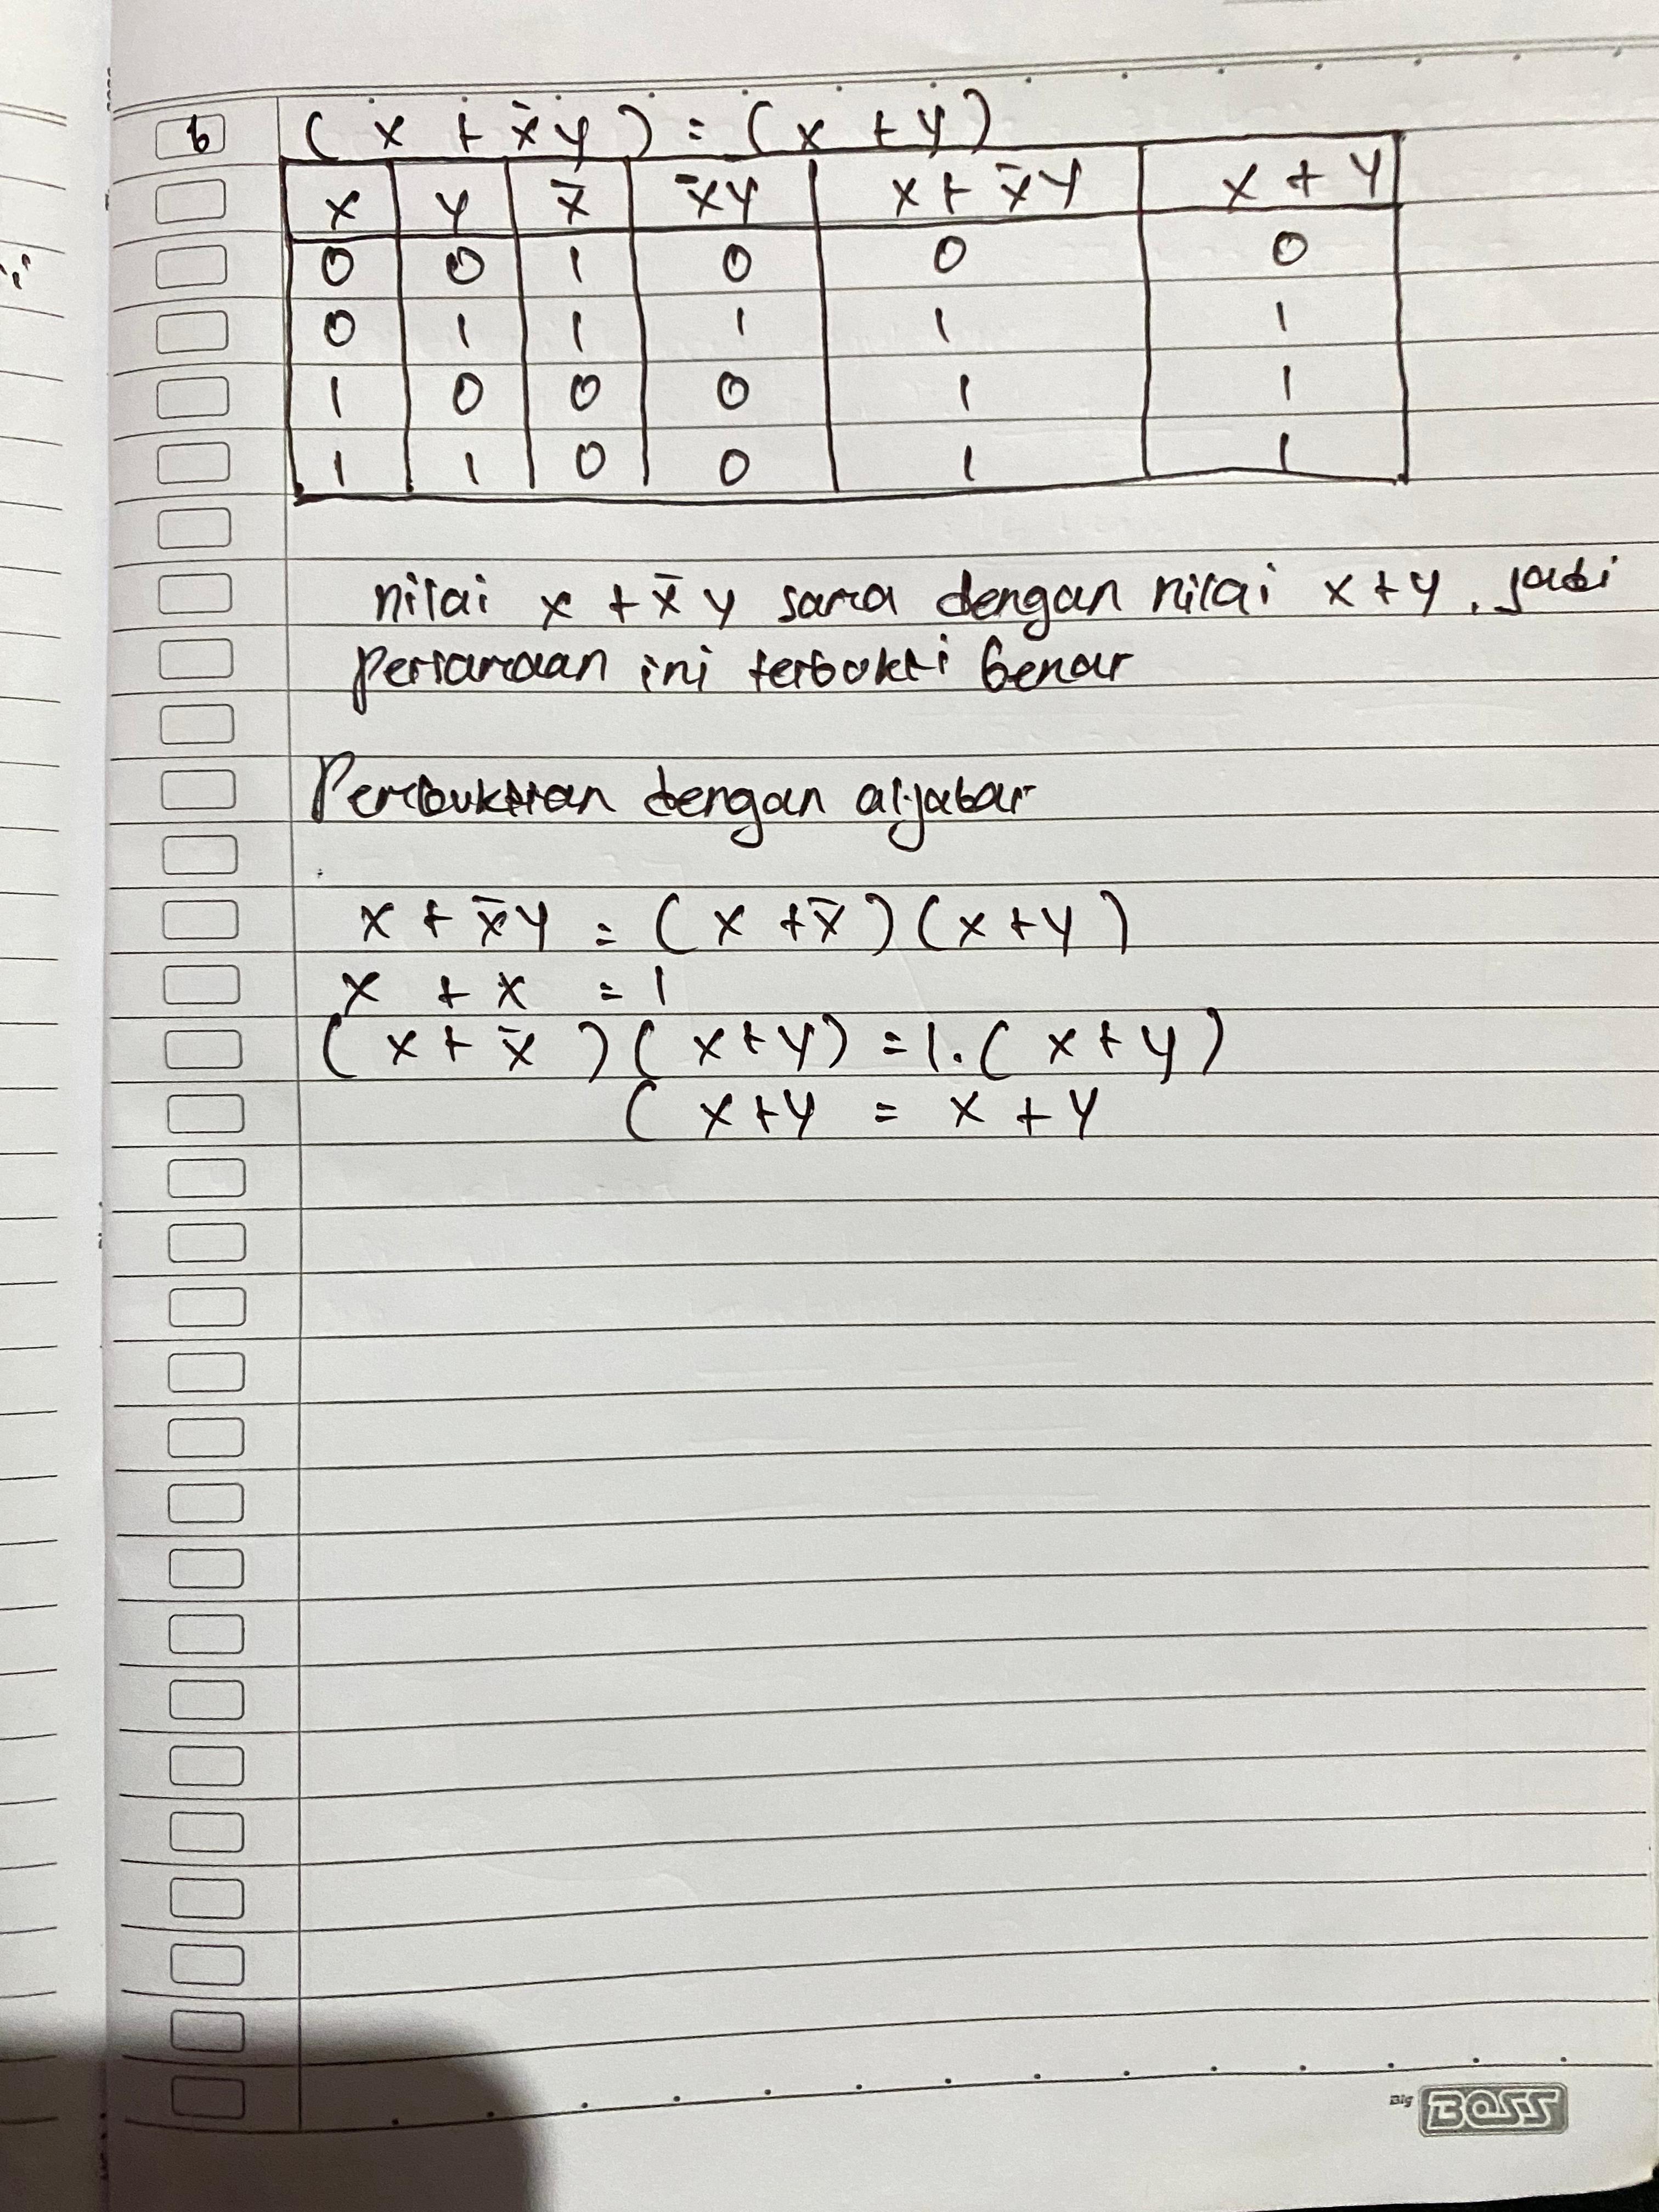 b (x + x̄y) = (x + y)
x y x̄ x̄y x + x̄y x + y
0 0 1 0 0 0
0 1 1 1 1 1
1 0 0 0 1 1
1 1 0 0 1 1
nilai x + x̄y sama dengan nilai x+y, jadi
persamaan ini terbukti benar
Pembuktian dengan aljabar
x + x̄y = (x + x̄)(x+y)
x + x = 1
(x + x̄)(x+y) = 1.(x+y)
(x+y = x + y
Big BOSS